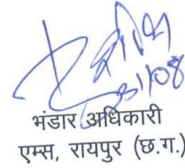 31/08
भंडार अधिकारी
एम्स, रायपुर (छ.ग.)